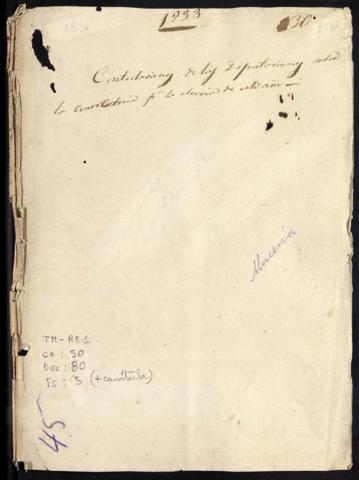 1833
30
Contestaciones de las Diputaciones sobre
la convocatoria pa. la eleccion de este año
Minería
TM-RE1
CA: 50
DOC: 80
FS: 5 (+ carátula)
45